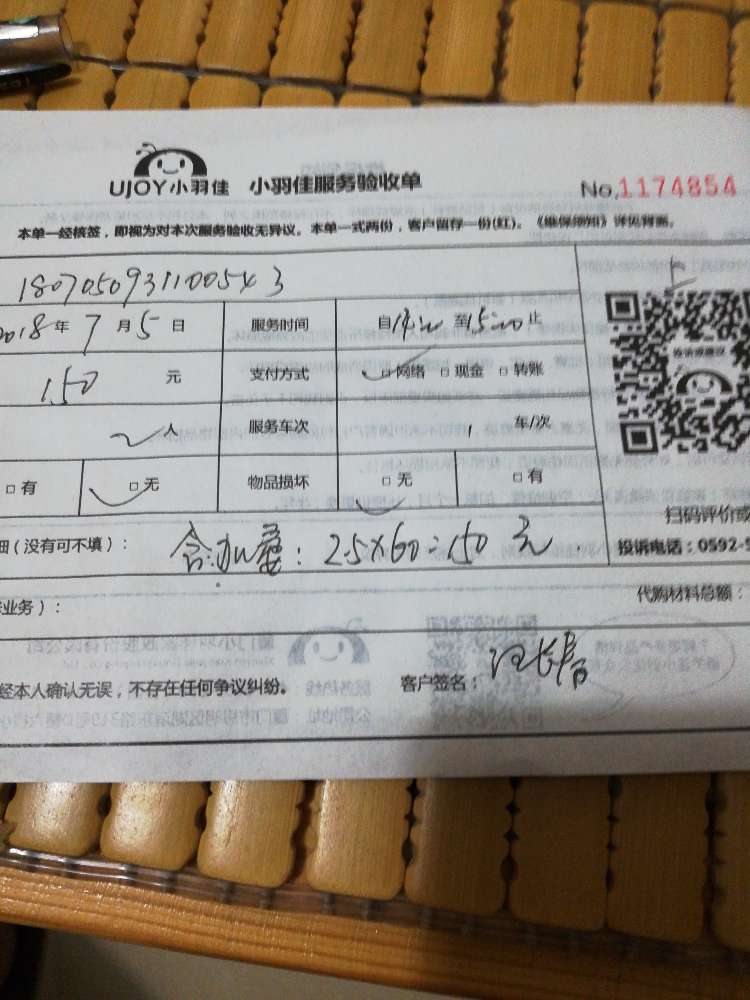 UJOY小羽佳 小羽佳服务验收单
No.1174854
本单一经核签，即视为对本次服务验收无异议。本单一式两份，客户留存一份(红)。《维保须知》详见背面。
1807050931100543
2018年7月5日 服务时间 自14:00至15:00止
150元 支付方式 □网络 □现金 □转账
2人 服务车次 1车/次
□有 □无 物品损坏 □无 □有
扫码评价或
细（没有可不填）： 2.5×60=150元
投诉电话：0592-5
业务）： 代购材料总额：
经本人确认无误，不存在任何争议纠纷。 客户签名：